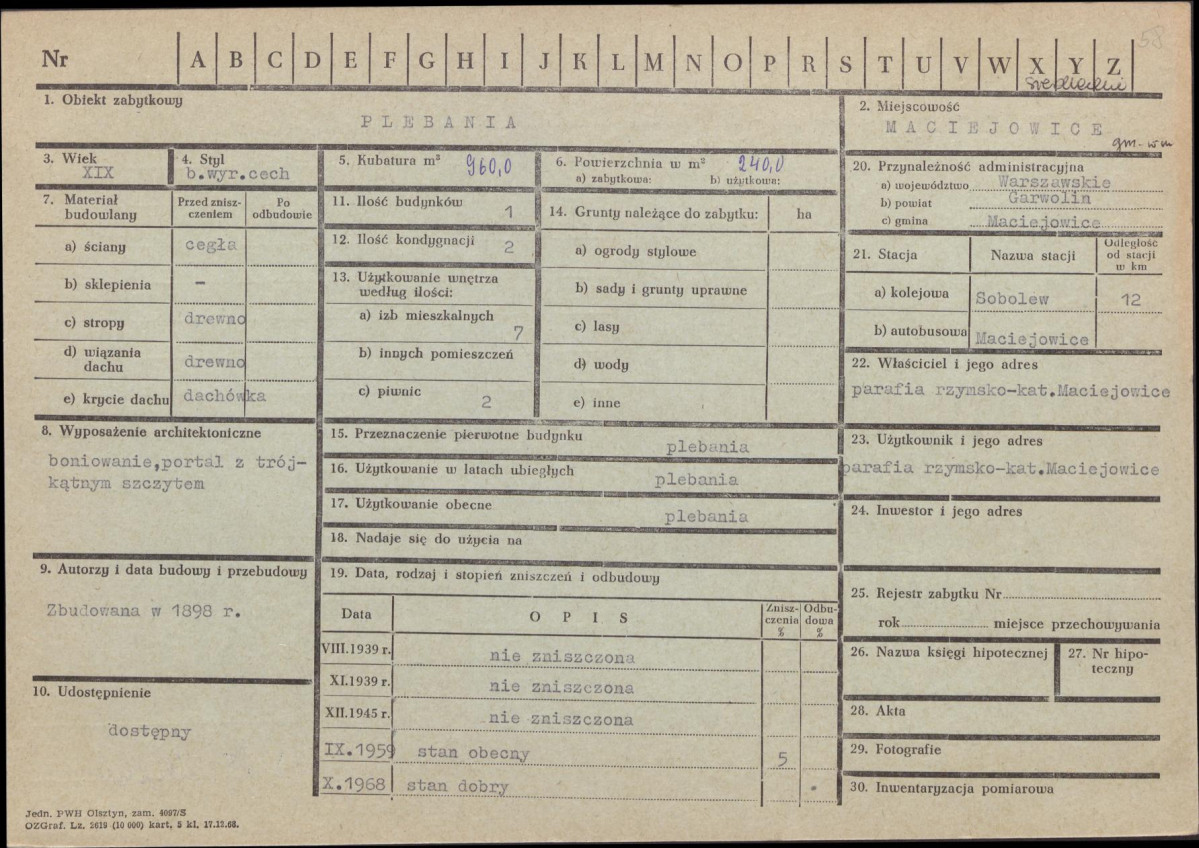 58
Nr A B C D E F G H I J K L M N O P R S T U V W X Y Z
siedleckie
1. Obiekt zabytkowy
PLEBANIA
2. Miejscowość
MACIEJOWICE
gm. w m
3. Wiek
XIX
4. Styl
b.wyr.cech
5. Kubatura m³
960,0
6. Powierzchnia w m²
240,0
a) zabytkowa: b) użytkowa:
7. Materiał budowlany
Przed zniszczeniem
Po odbudowie
a) ściany cegła
b) sklepienia –
c) stropy drewno
d) wiązania dachu drewno
e) krycie dachu dachówka
8. Wyposażenie architektoniczne
boniowanie,portal z trój-
kątnym szczytem
9. Autorzy i data budowy i przebudowy
Zbudowana w 1898 r.
10. Udostępnienie
dostępny
11. Ilość budynków 1
12. Ilość kondygnacji 2
13. Użytkowanie wnętrza
według ilości:
a) izb mieszkalnych
7
b) innych pomieszczeń
c) piwnic
2
14. Grunty należące do zabytku: ha
a) ogrody stylowe
b) sady i grunty uprawne
c) lasy
d) wody
e) inne
15. Przeznaczenie pierwotne budynku
plebania
16. Użytkowanie w latach ubiegłych
plebania
17. Użytkowanie obecne
plebania
18. Nadaje się do użycia na
19. Data, rodzaj i stopień zniszczeń i odbudowy
Data OPIS Zniszczenia % Odbudowa %
VIII.1939 r. nie zniszczona
XI.1939 r. nie zniszczona
XII.1945 r. nie zniszczona
IX.1959 stan obecny 5
X.1968 stan dobry
20. Przynależność administracyjna
a) województwo Warszawskie
b) powiat Garwolin
c) gmina Maciejowice
21. Stacja Nazwa stacji Odległość od stacji w km
a) kolejowa Sobolew 12
b) autobusowa Maciejowice
22. Właściciel i jego adres
parafia rzymsko-kat.Maciejowice
23. Użytkownik i jego adres
parafia rzymsko-kat.Maciejowice
24. Inwestor i jego adres
25. Rejestr zabytku Nr
rok miejsce przechowywania
26. Nazwa księgi hipotecznej
27. Nr hipo-
teczny
28. Akta
29. Fotografie
30. Inwentaryzacja pomiarowa
Jedn. PWH Olsztyn, zam. 4097/S
OZGraf. Lz. 2619 (10 000) kart. 5 kl. 17.12.68.